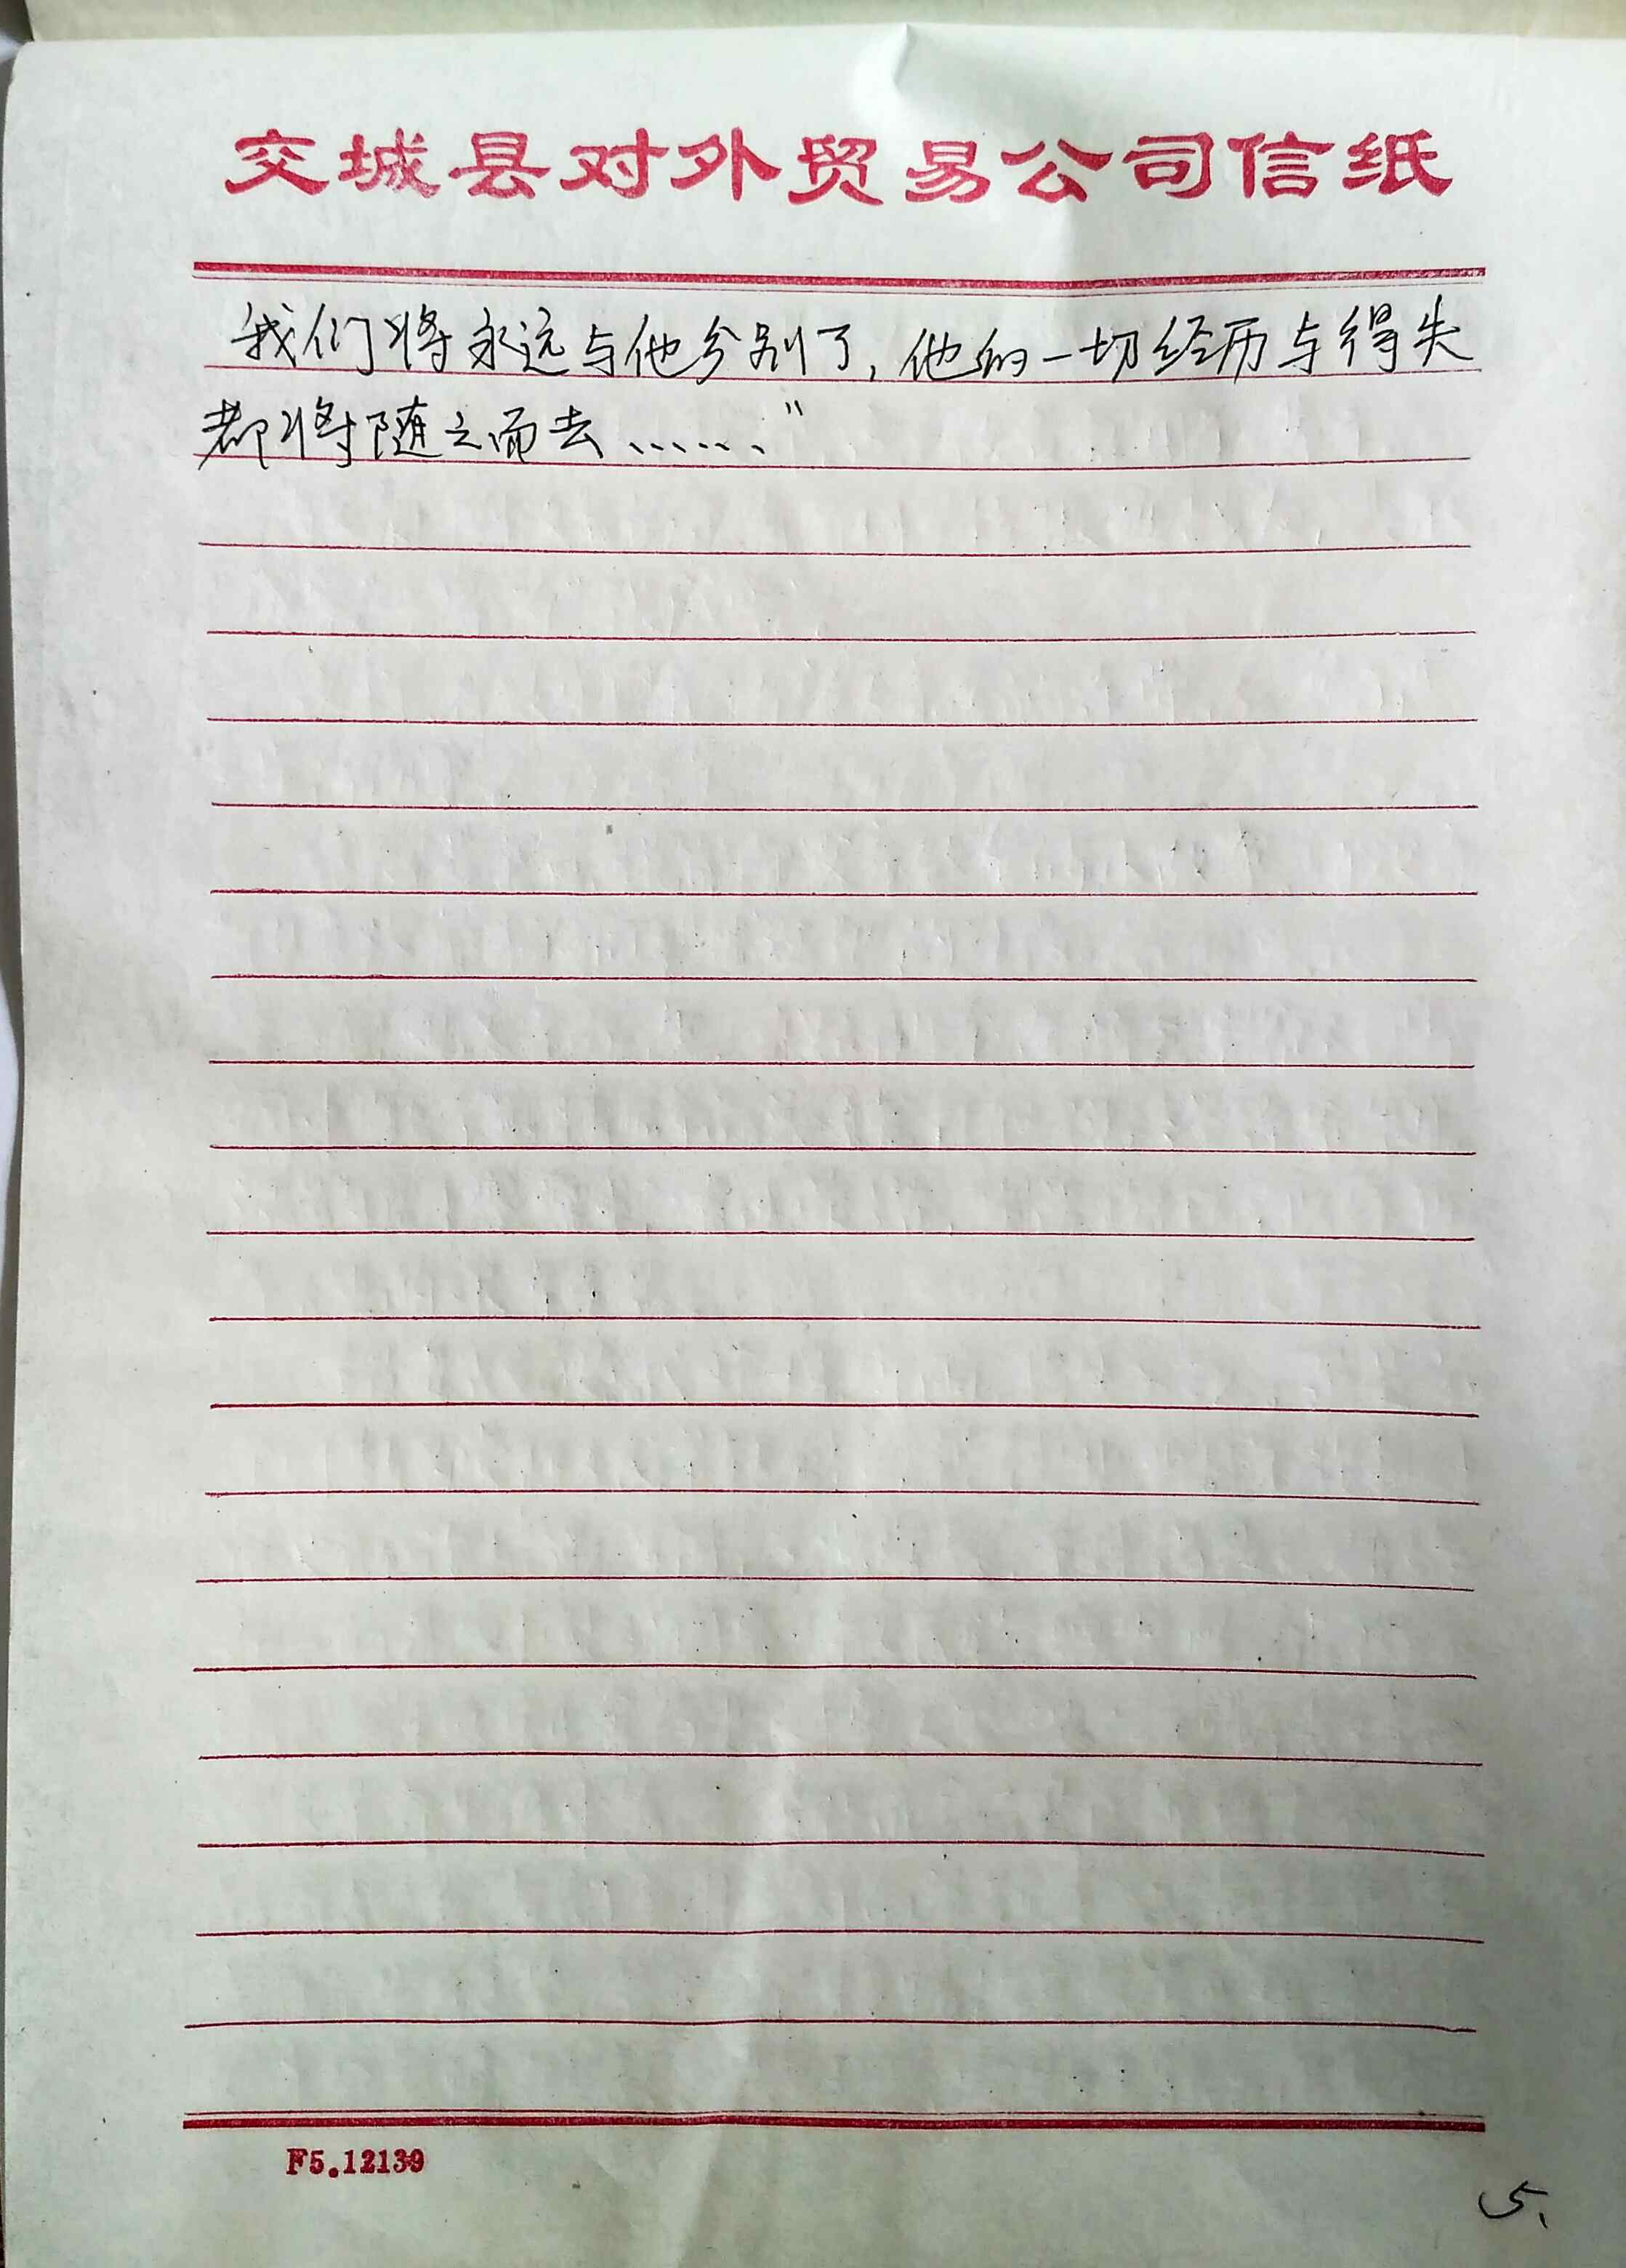 交城县对外贸易公司信纸
我们将永远与他分别了，他的一切经历与得失
都将随之而去……”
F5.12139
5、